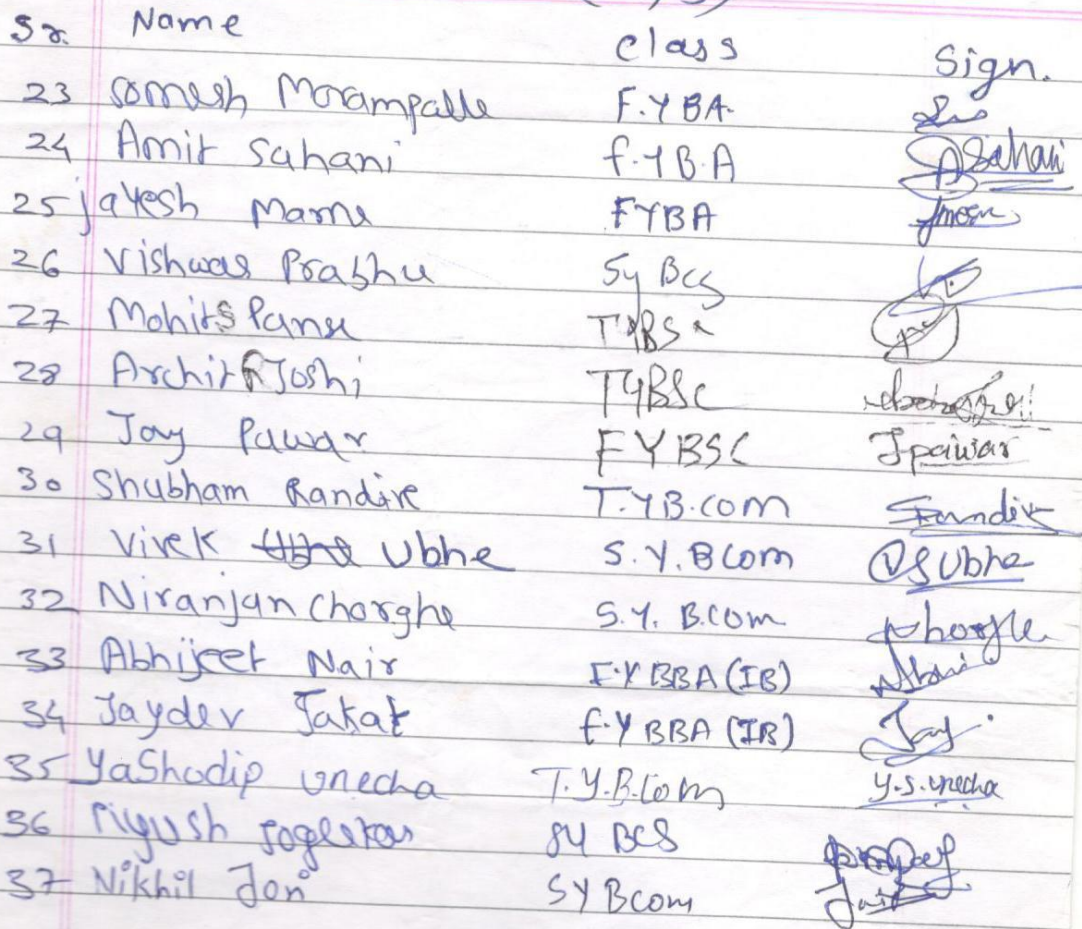 Sr. Name Class Sign.
23 Somesh Morampalle F.YBA.
24 Amit Sahani f.YB.A ASahani
25 jayesh Marne FYBA
26 Vishwas Prabhu Sy Bcs
27 Mohit S Panse TYBSc
28 Archit R Joshi TYBSc
29 Jay Pawar FYBSC Jpawar
30 Shubham Randive T.YB.com SRandive
31 Vivek Ubhe S.Y.BCom VSUbhe
32 Niranjan Chorghe S.Y. B.com
33 Abhijeet Nair F.Y BBA (IB)
34 Jaydev Jakat f.Y BBA (IB) Jay
35 YaShodip Unecha T.Y.B.Com Y.S.Unecha
36 Piyush Joglekar SY BCS
37 Nikhil SY Bcom